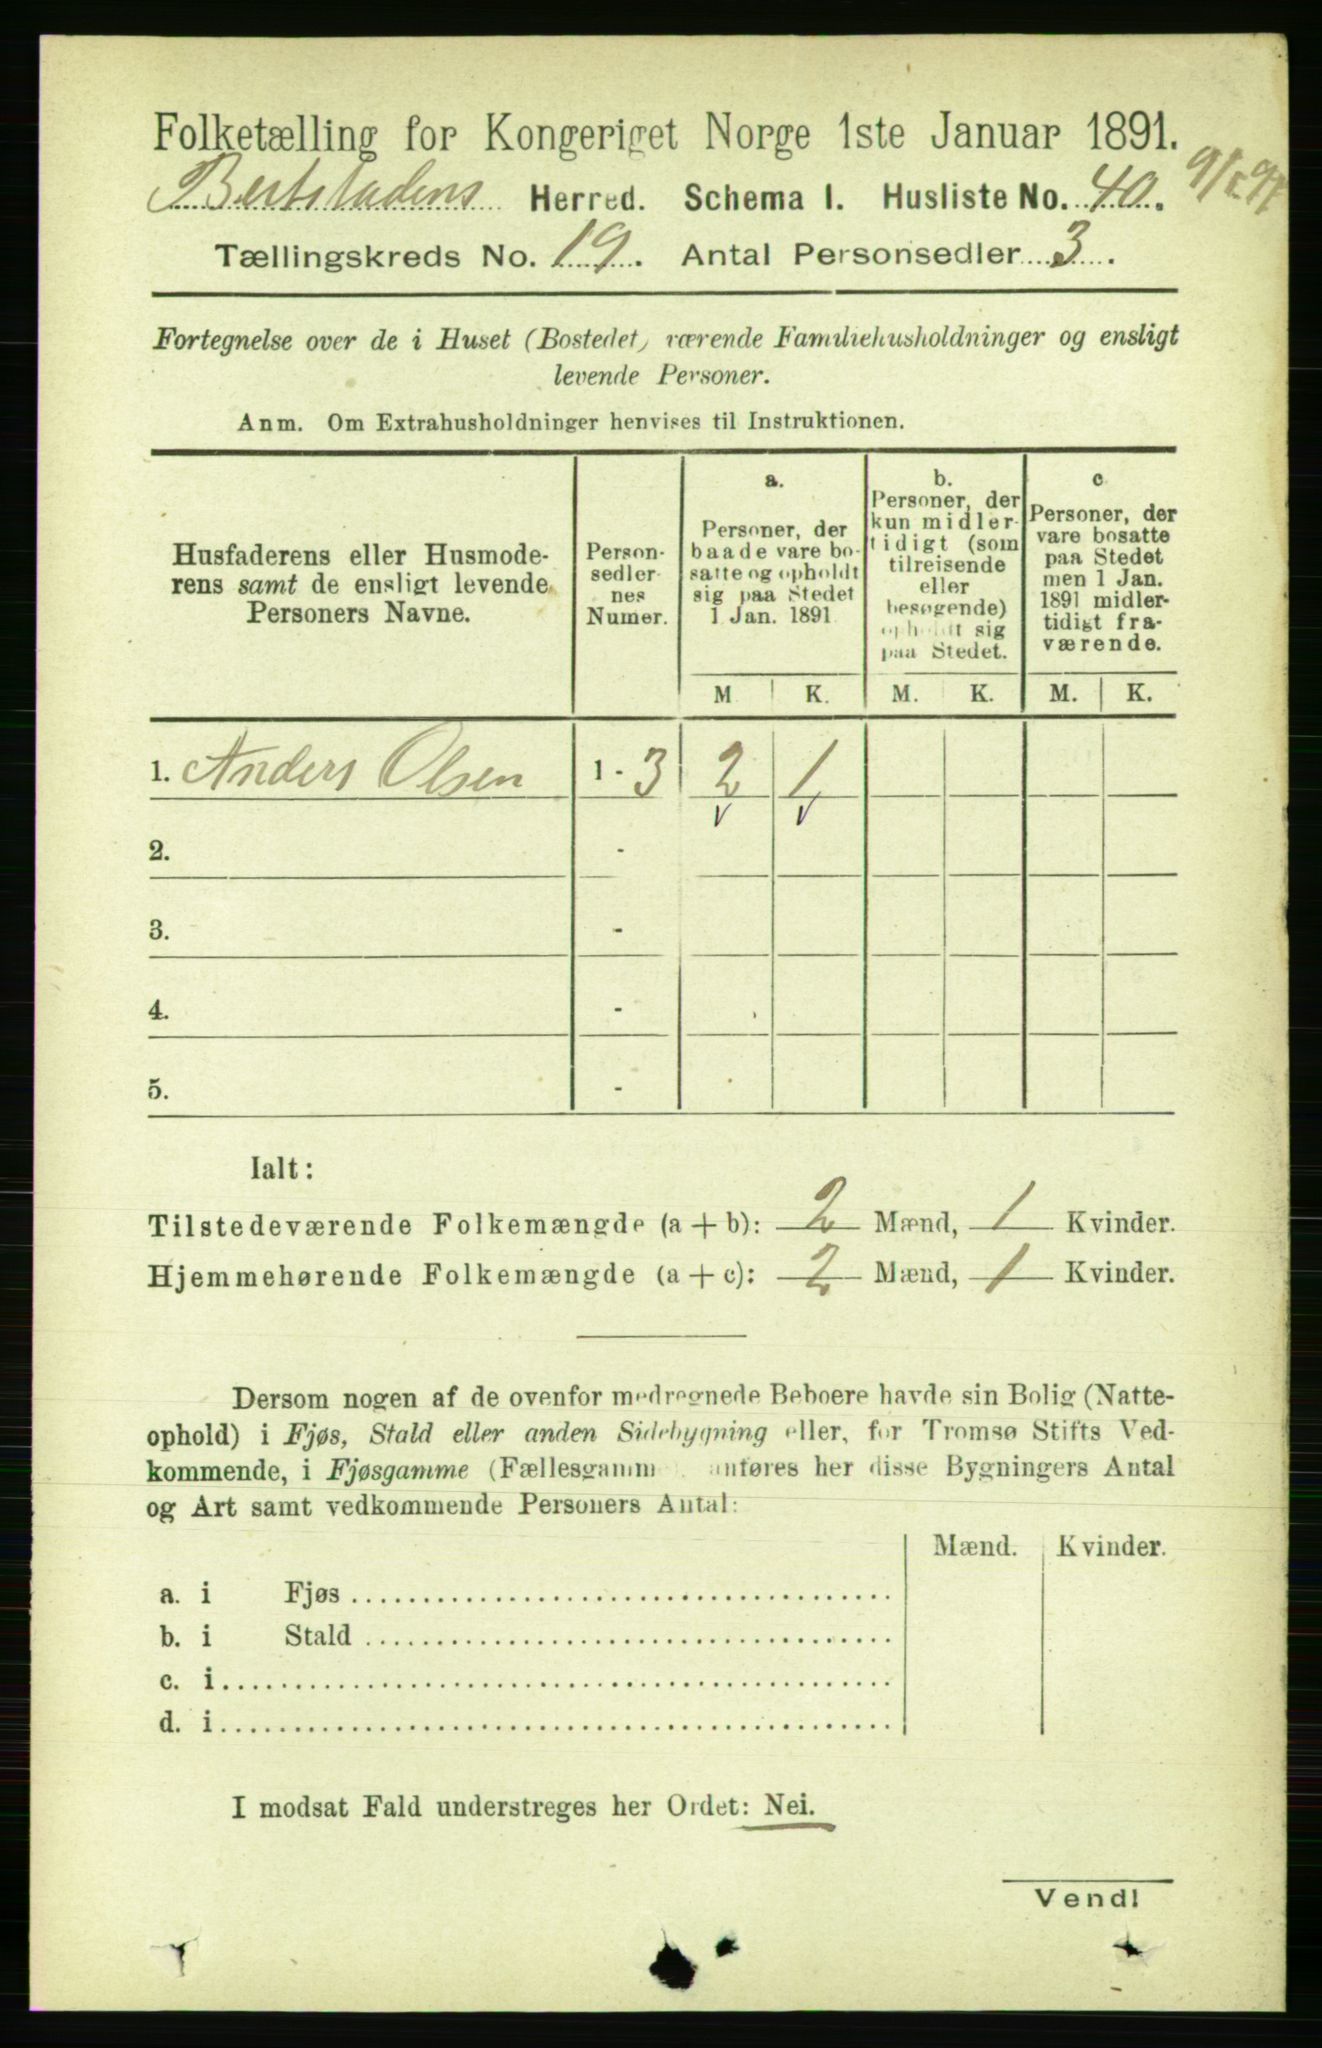 Folketælling for Kongeriget Norge 1ste Januar 1891.
Beitstadens Herred. Schema 1. Husliste No. 40.
Tællingskreds No. 19. Antal Personsedler 3.
Fortegnelse over de i Huset (Bostedet) værende Familiehusholdninger og ensligt
levende Personer.
Anm. Om Extrahusholdninger henvises til Instruktionen.
Husfaderens eller Husmode-
rens samt de ensligt levende
Personers Navne.
Person-
sedler-
nes
Numer.
a.
Personer, der
baade vare bo-
satte og opholdt
sig paa Stedet
1 Jan. 1891
b.
Personer, der
kun midler-
tidigt (som
tilreisende
eller
besøgende)
opholdt sig
paa Stedet.
c
Personer, der
vare bosatte
paa Stedet
men 1 Jan.
1891 midler-
tidigt fra-
værende.
M K. M. K. M. K.
1. Anders Olsen 1 - 3 2 1
2. -
3. -
4. -
5. -
Ialt:
Tilstedeværende Folkemængde (a + b): 2 Mænd, 1 Kvinder.
Hjemmehørende Folkemængde (a + c): 2 Mænd, 1 Kvinder.
Dersom nogen af de ovenfor medregnede Beboere havde sin Bolig (Natte-
ophold) i Fjøs, Stald eller anden Sidebygning eller, for Tromsø Stifts Ved-
kommende, i Fjøsgamme (Fællesgamm anføres her disse Bygningers Antal
og Art samt vedkommende Personers Antal:
Mænd. Kvinder.
a. i Fjøs
b. i Stald
c. i
d. i
I modsat Fald understreges her Ordet: Nei.
Vend!